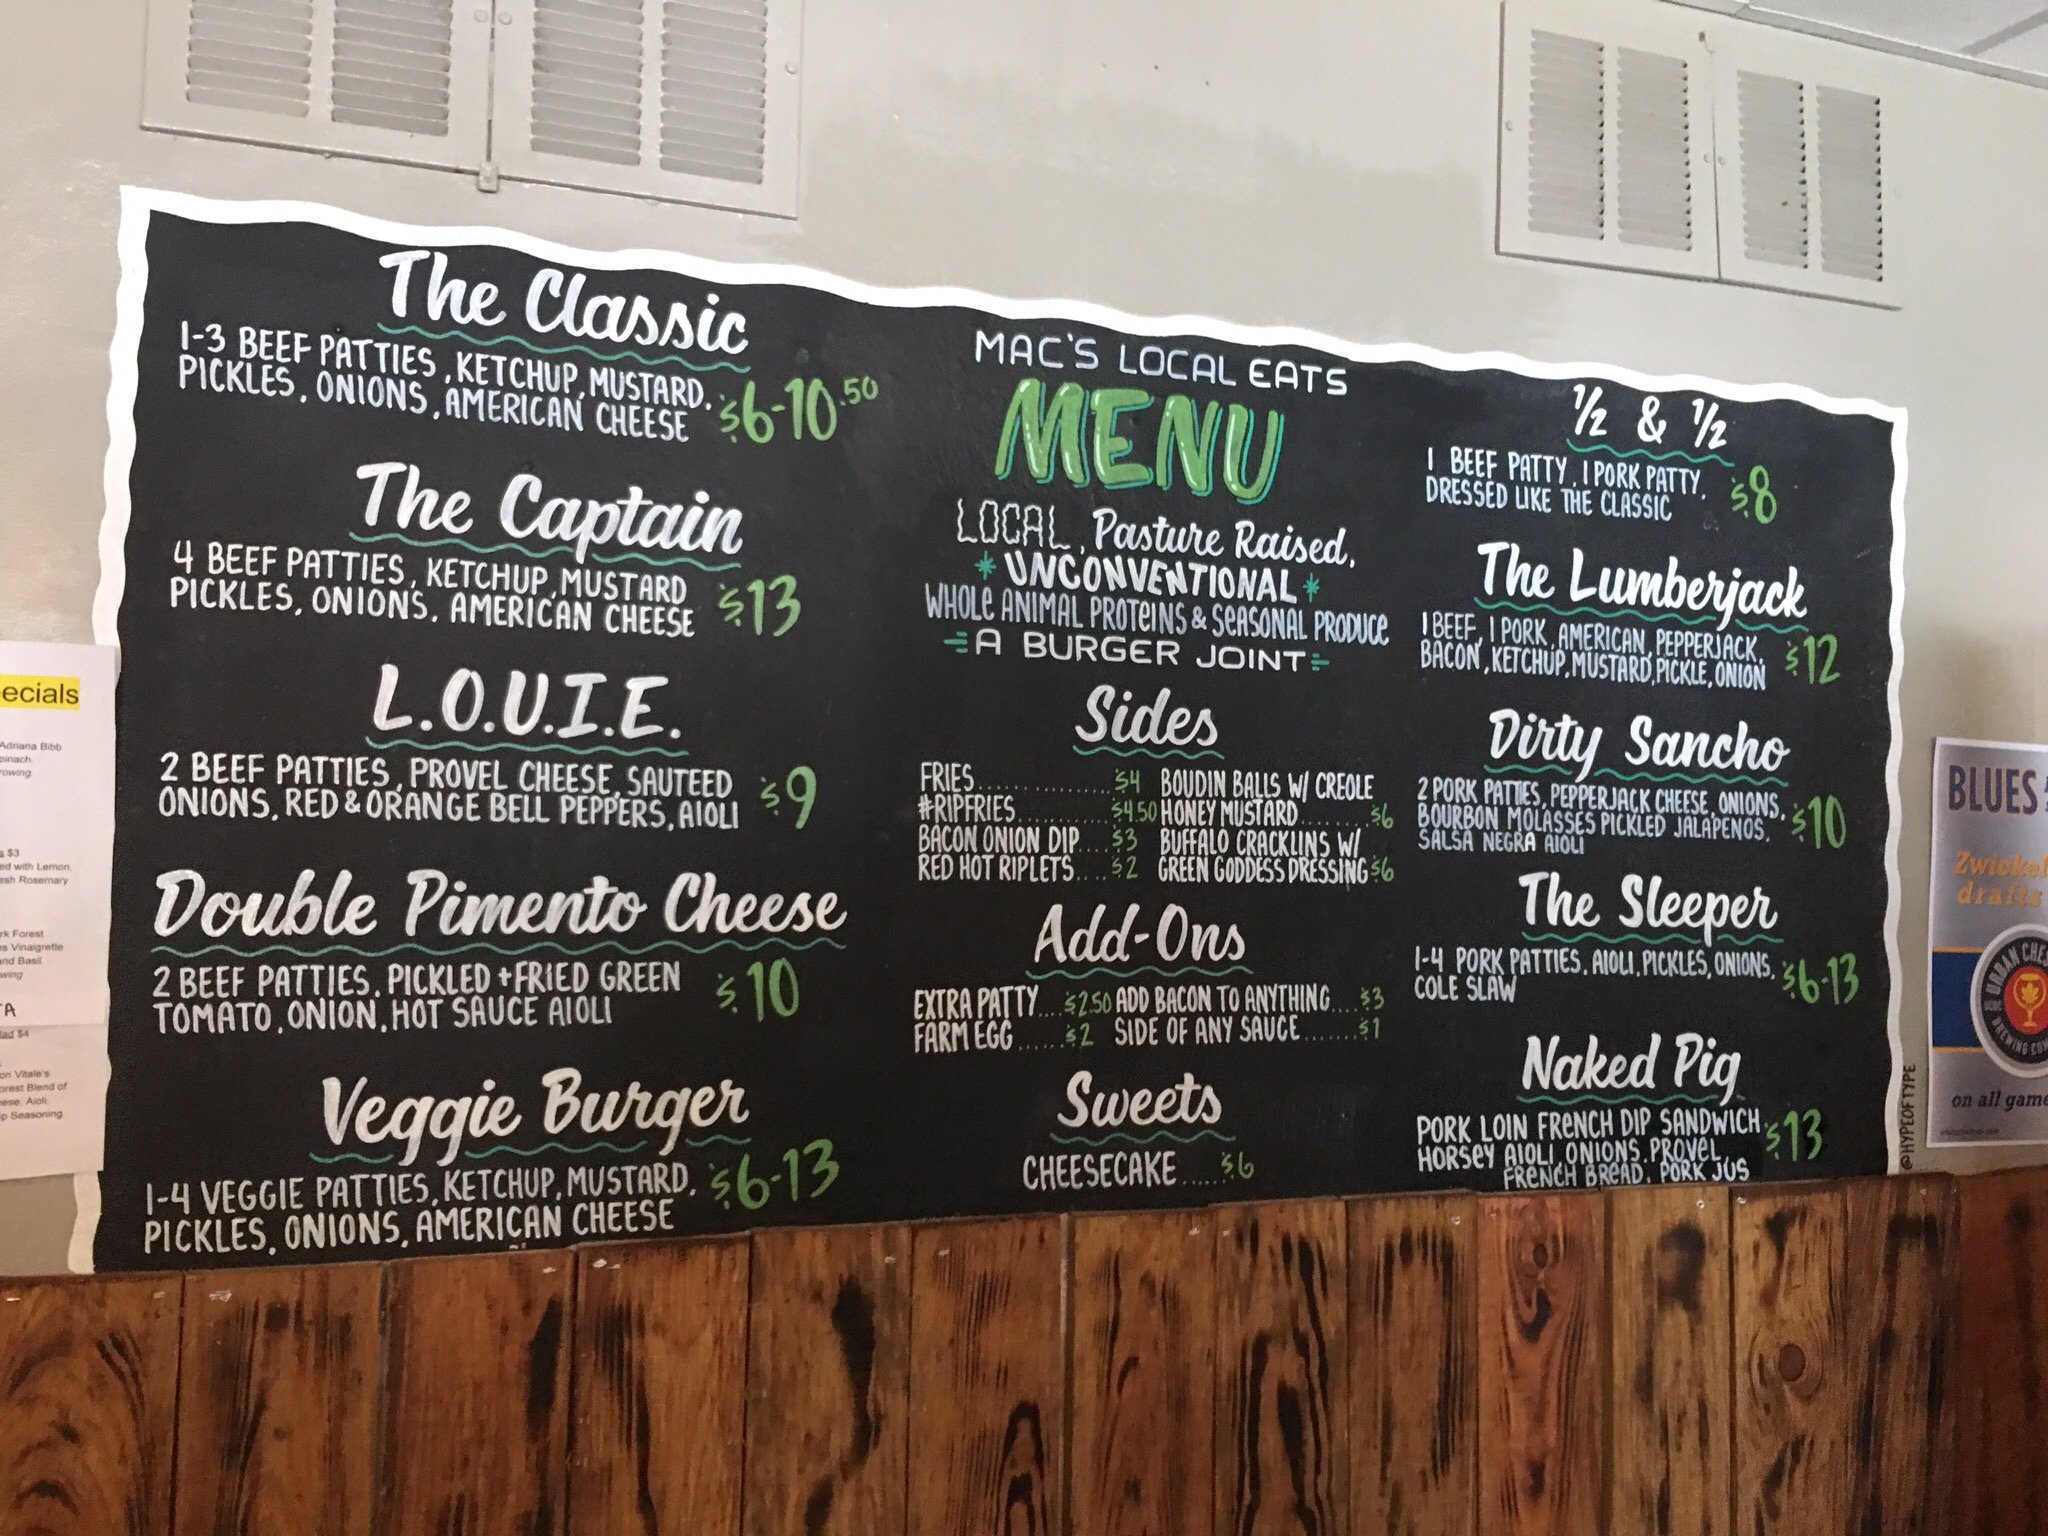 The Classic
1-3 BEEF PATTIES, KETCHUP, MUSTARD,
PICKLES, ONIONS, AMERICAN CHEESE
$6-10.50
The Captain
4 BEEF PATTIES, KETCHUP, MUSTARD
PICKLES, ONIONS, AMERICAN CHEESE
$13
L.O.U.I.E.
2 BEEF PATTIES, PROVEL CHEESE, SAUTEED
ONIONS, RED & ORANGE BELL PEPPERS, AIOLI
$9
Double Pimento Cheese
2 BEEF PATTIES, PICKLED + FRIED GREEN
TOMATO, ONION, HOT SAUCE AIOLI
$10
Veggie Burger
1-4 VEGGIE PATTIES, KETCHUP, MUSTARD,
PICKLES, ONIONS, AMERICAN CHEESE
$6-13
MAC'S LOCAL EATS
MENU
LOCAL, Pasture Raised,
UNCONVENTIONAL
WHOLE ANIMAL PROTEINS & SEASONAL PRODUCE
A BURGER JOINT
Sides
FRIES..................$4
#RIPFRIES..........$4.50
BACON ONION DIP....$3
RED HOT RIPLETS....$2
BOUDIN BALLS W/ CREOLE
HONEY MUSTARD.........$6
BUFFALO CRACKLINS W/
GREEN GODDESS DRESSING $6
Add-Ons
EXTRA PATTY....$2.50
FARM EGG......$2
ADD BACON TO ANYTHING....$3
SIDE OF ANY SAUCE.......$1
Sweets
CHEESECAKE.....$6
1/2 & 1/2
1 BEEF PATTY, 1 PORK PATTY,
DRESSED LIKE THE CLASSIC
$8
The Lumberjack
1 BEEF, 1 PORK, AMERICAN, PEPPERJACK,
BACON, KETCHUP, MUSTARD, PICKLE, ONION
$12
Dirty Sancho
2 PORK PATTIES, PEPPERJACK CHEESE, ONIONS,
BOURBON MOLASSES PICKLED JALAPENOS,
SALSA NEGRA AIOLI
$10
The Sleeper
1-4 PORK PATTIES, AIOLI, PICKLES, ONIONS,
COLE SLAW
$6-13
Naked Pig
PORK LOIN FRENCH DIP SANDWICH
HORSEY AIOLI, ONIONS, PROVEL,
FRENCH BREAD, PORK JUS
$13
@HYPEOFTYPE
ecials
Adriana Bibb
pinach.
rowing.
$3
ed with Lemon
esh Rosemary
rk Forest
s Vinaigrette
and Basil
wing
TA
lad $4
on Vitale's
orest Blend of
eese, Aioli,
p Seasoning
BLUES
Zwickel
drafts
URBAN CHES
BREWING COM
on all game